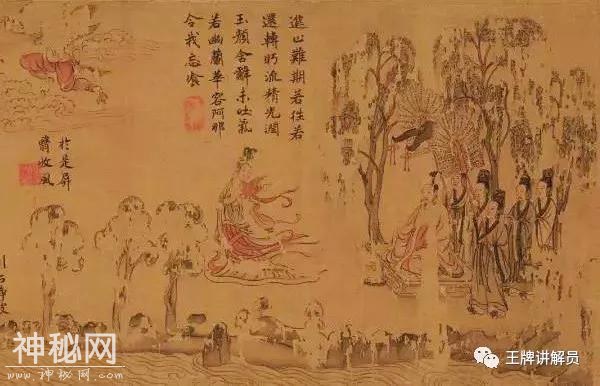 進止難期若往若
還轉眄流精光潤
玉顏含辭未吐氣
若幽蘭華容阿那
令我忘飡
於是屏
翳收風
神秘网
WwW.神秘网.CoM
王牌讲解员